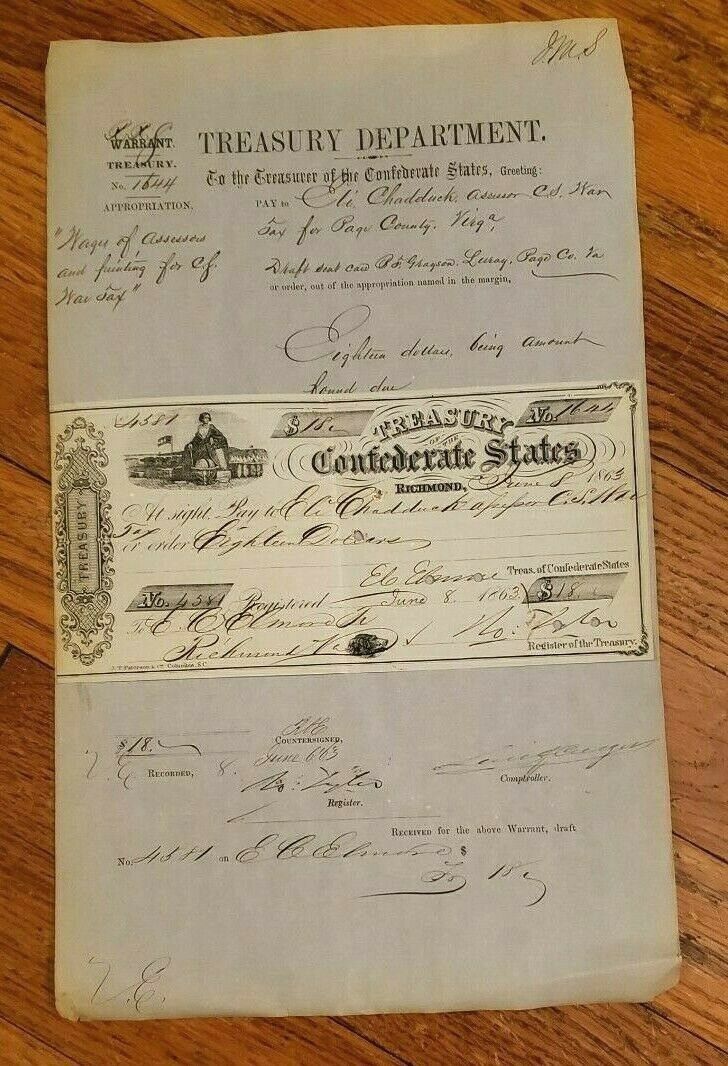 J.M.S
WARRANT.
TREASURY.
No. 1644
APPROPRIATION.
"Wages of Assessors
and printing for C.S.
War Tax"
TREASURY DEPARTMENT.
To the Treasurer of the Confederate States, Greeting:
PAY to Eli Chadduck, assessor C.S. War
Tax for Page County, Virga,
Draft sent care P.F. Grayson. Luray, Page Co. Va
or order, out of the appropriation named in the margin,
Eighteen dollars, being amount
found due
4581
$18.
TREASURY
No. 1644
OF THE
Confederate States
RICHMOND, June 8 1863
TREASURY
At sight, Pay to Eli Chadduck assessor C.S. War
Tax
or order Eighteen Dollars
E C Elmore Treas. of Confederate States
No. 4581 Registered June 8. 1863 $18.
To E. C. Elmore Tr
Richmond Va
Ro: Tyler
Register of the Treasury.
J. T. Paterson & Co. Columbia, S.C
$18.
COUNTERSIGNED,
June 6 63
RECORDED, 8.
Ro: Tyler
Register.
Lewis Cruger
Comptroller.
RECEIVED for the above Warrant, draft
No. 4581 on E C Elmore $
Tr 18